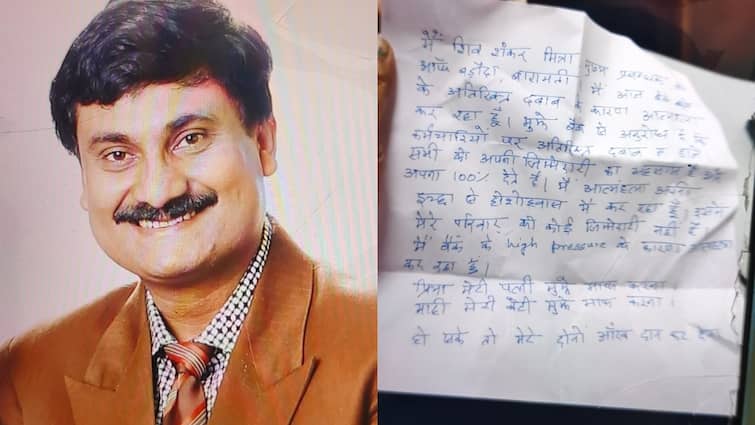 मैं शिव शंकर मित्रा मुख्य प्रबन्धक
ऑफ बड़ौदा, बारामती में आज बैंक
के अतिरिक्त दबाव के कारण आत्महत्या
कर रहा हूँ। मुझे बैंक से अनुरोध है कि
कर्मचारियों पर अतिरिक्त दबाव न
सभी को अपनी जिम्मेदारी का अहसास है और
अपना 100% देते हैं। मैं आत्महत्या अपनी
इच्छा से होशोहवास में कर रहा हूँ। इसमें
मेरे परिवार की कोई जिम्मेदारी नहीं है
मैं बैंक के high pressure के कारण आत्महत्या
कर रहा हूँ।
प्रिया मेरी पत्नी मुझे माफ करना
माही मेरी बेटी मुझे माफ करना।
हो सके तो मेरे दोनो आँख दान कर देना